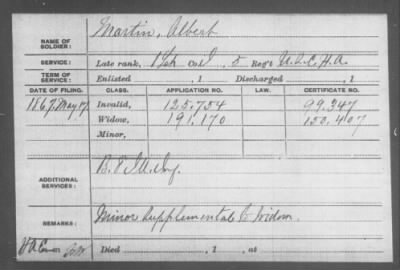 NAME OF SOLDIER: Martin, Albert
SERVICE: Late rank, Co. Reg't U.S.C.H.A.
TERM OF SERVICE: Enlisted , 1 Discharged , 1
DATE OF FILING. CLASS. APPLICATION NO. LAW. CERTIFICATE NO.
1867, May 17, Invalid, 125.754 99.347
Widow, 191.170 150.407
Minor,
ADDITIONAL SERVICES:
REMARKS: Minor Supplemental to Widow.
Died , 1 , at